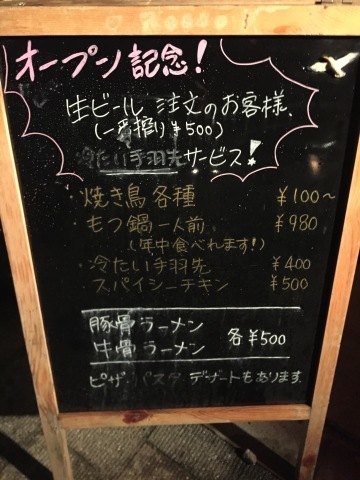 オープン記念!
生ビール注文のお客様、
(一番搾り¥500)
冷たい手羽先サービス!
・焼き鳥各種 ¥100〜
・もつ鍋一人前 ¥980
(年中食べれます!)
・冷たい手羽先 ¥400
・スパイシーチキン ¥500
豚骨ラーメン
牛骨ラーメン 各¥500
ピザ、パスタ、デザートもあります。